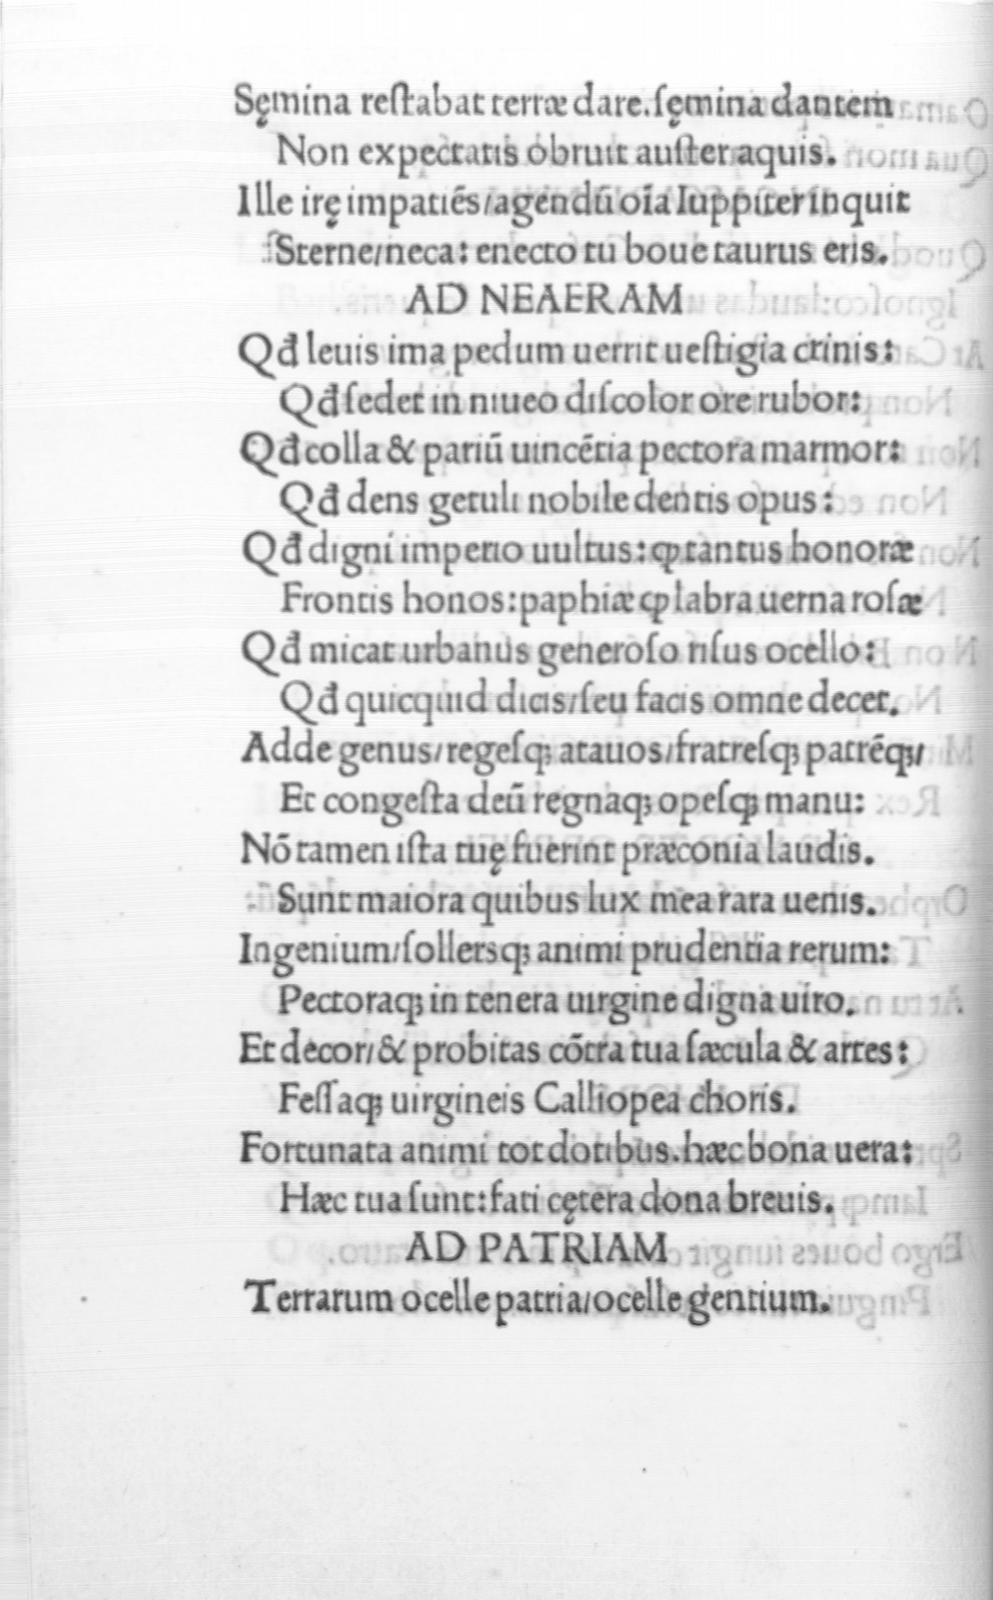 Sęmina reſtabat terræ dare. ſęmina dantem
Non expectatis obruit auſter aquis.
Ille irę impatiẽs/agendũ oĩa Iuppiter inquit
Sterne/neca: enecto tu boue taurus eris.
AD NEAERAM
Qđ leuis ima pedum uerrit ueſtigia crinis:
Qđ ſedet in niueo diſcolor ore rubor:
Qđ colla & pariũ uincẽtia pectora marmor:
Qđ dens getuli nobile dentis opus:
Qđ digni imperio uultus: ꝙ tantus honoræ
Frontis honos: paphiæ ꝙ labra uerna roſæ
Qđ micat urbanus generoſo riſus ocello:
Qđ quicquid dicis/ſeu facis omne decet.
Adde genus/regeſqꝫ atauos/fratreſqꝫ patrẽqꝫ/
Et congeſta deũ regnaqꝫ opeſqꝫ manu:
Nõ tamen iſta tuę fuerint præconia laudis.
Sunt maiora quibus lux mea rara uenis.
Ingenium/ſollersqꝫ animi prudentia rerum:
Pectoraqꝫ in tenera uirgine digna uiro.
Et decor/& probitas cõtra tua ſæcula & artes:
Feſſaqꝫ uirgineis Calliopea choris.
Fortunata animi tot dotibus. hæc bona uera:
Hæc tua ſunt: fati cętera dona breuis.
AD PATRIAM
Terrarum ocelle patria/ocelle gentium.